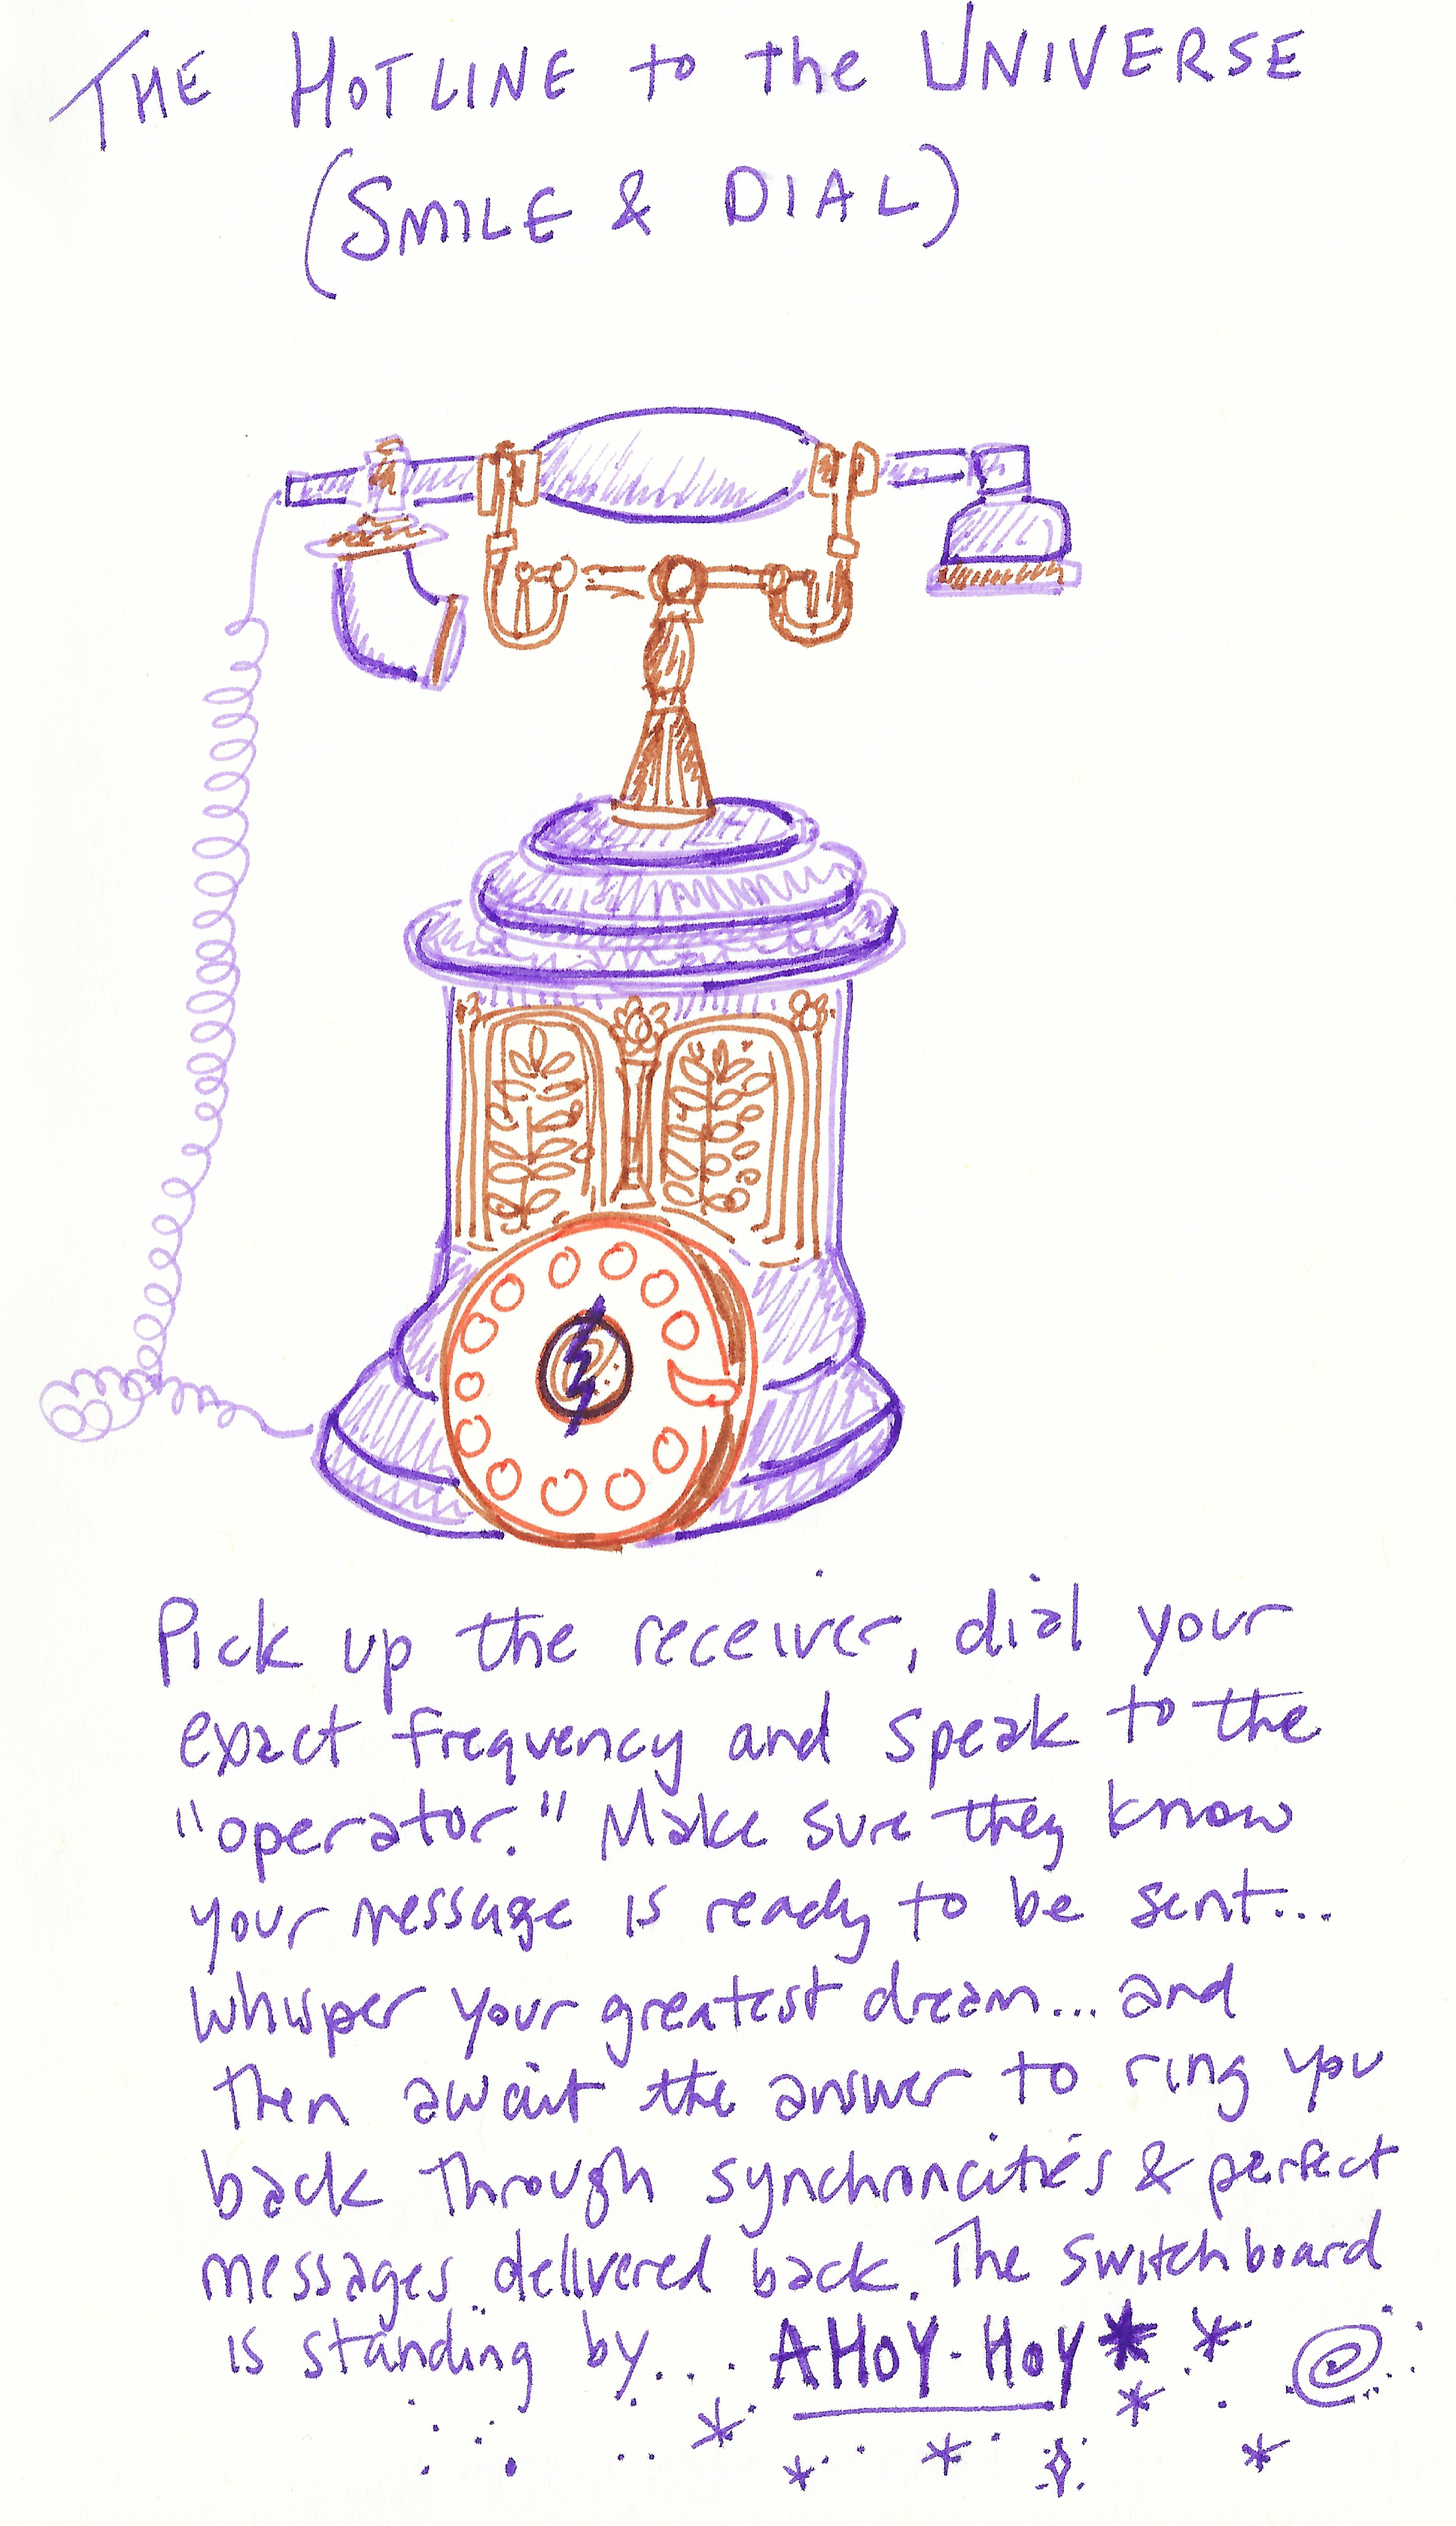 THE HOTLINE to the UNIVERSE
(SMILE & DIAL)
Pick up the receiver, dial your
exact frequency and speak to the
"operator." Make sure they know
your message is ready to be sent...
whisper your greatest dream... and
then await the answer to ring you
back through synchroncities & perfect
messages delivered back. The switchboard
is standing by... AHOY-HOY